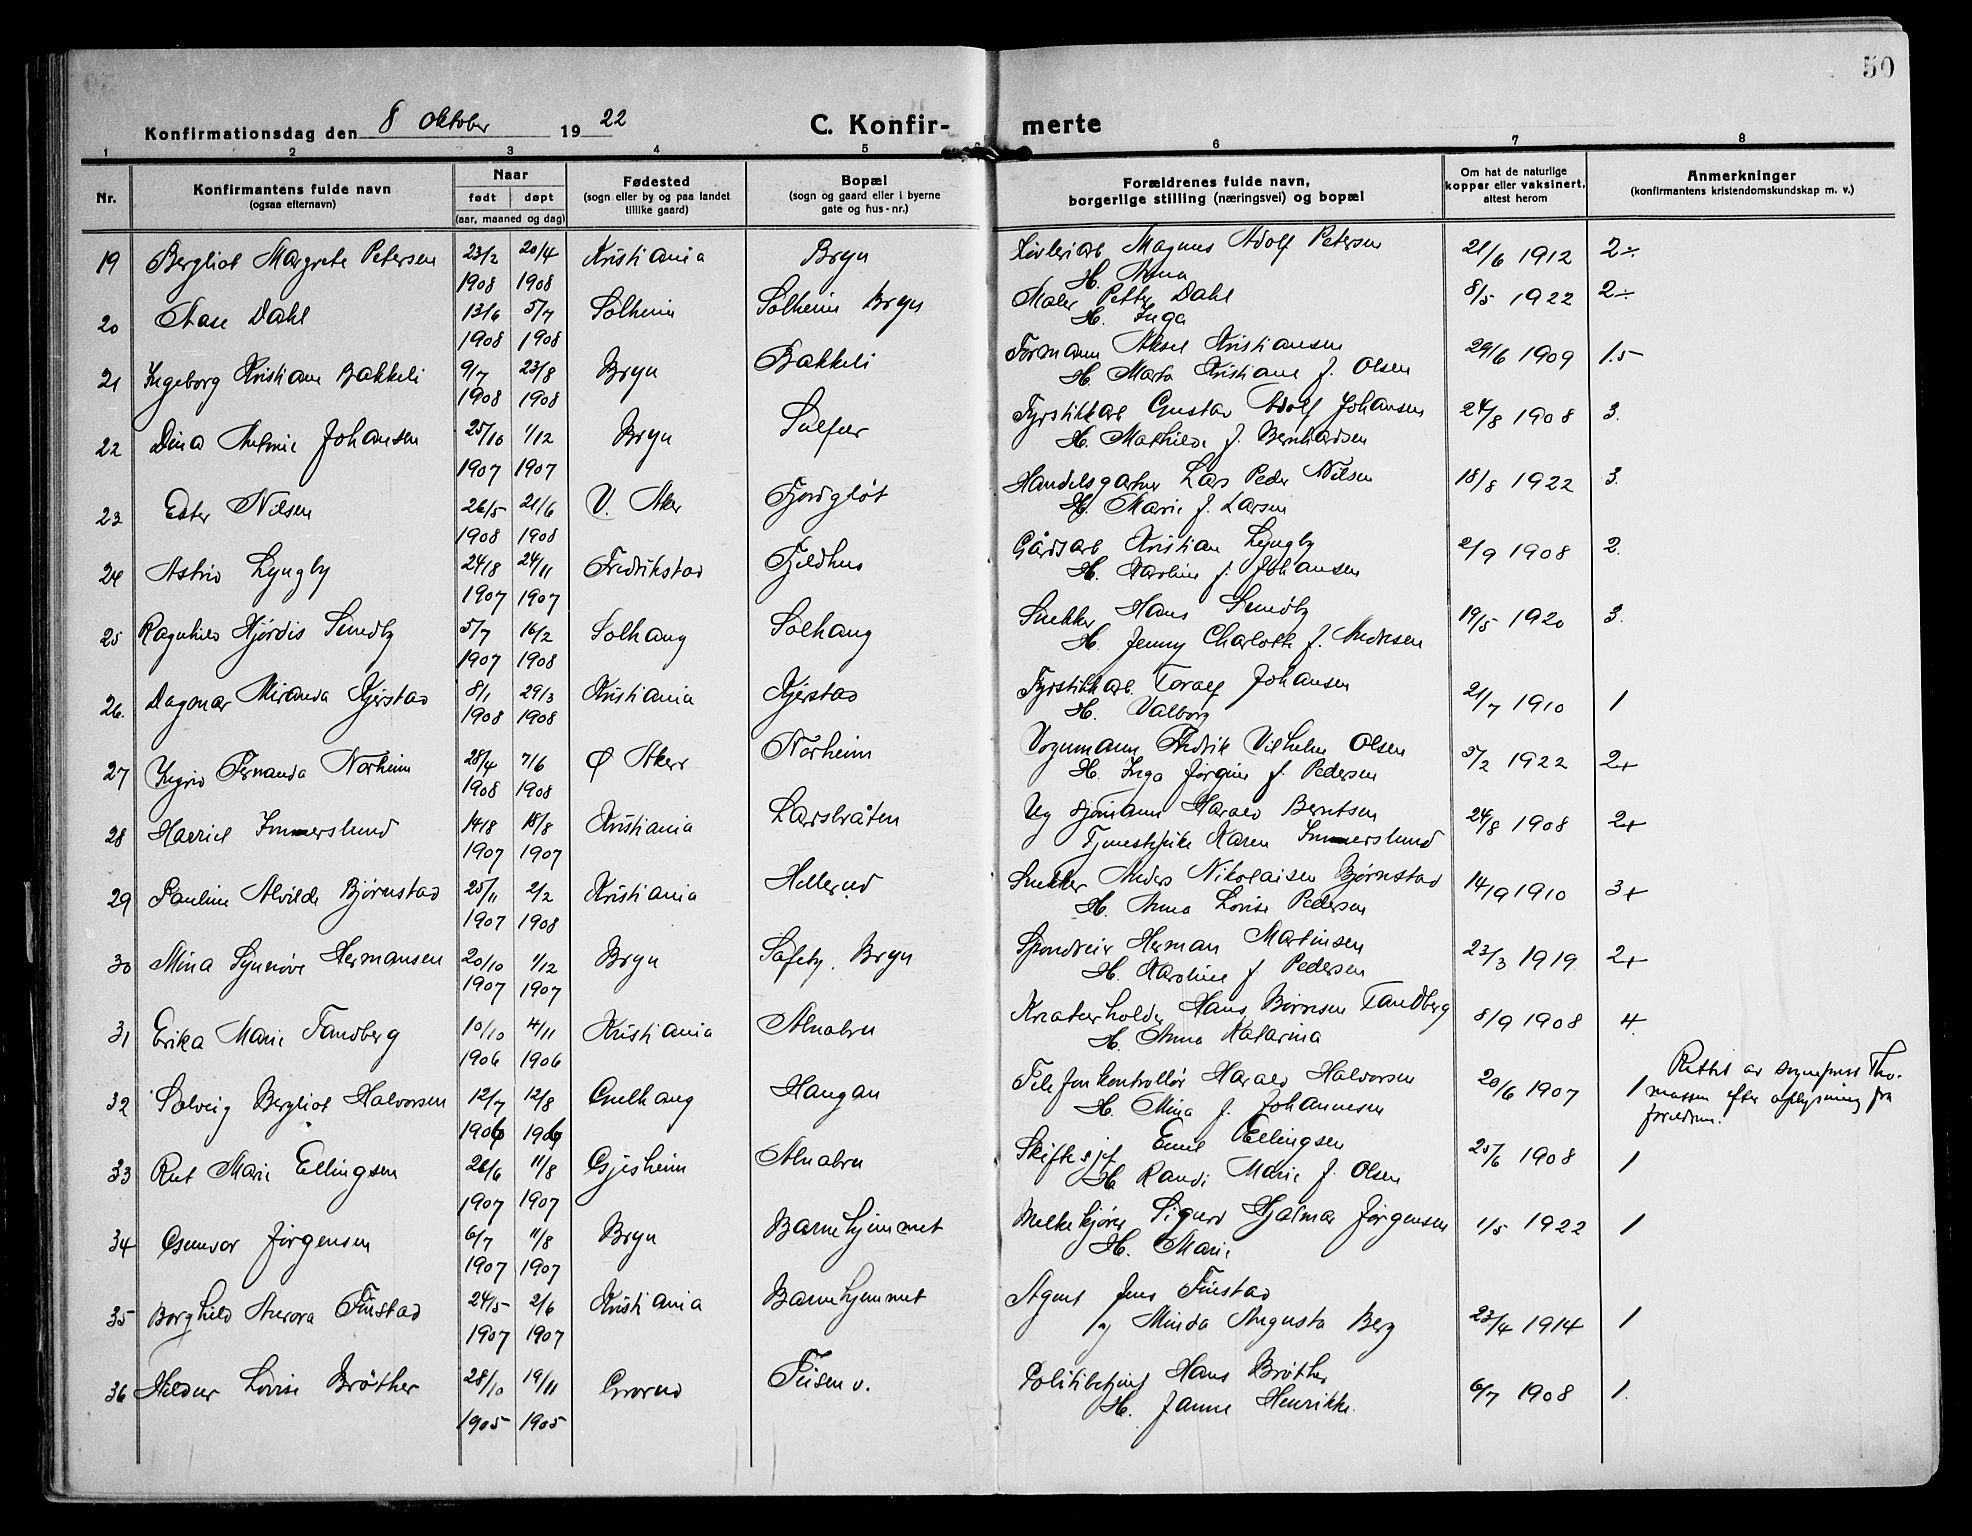 50
Konfirmationsdag den 8 oktober 1922 C. Konfir- merte
1 2 3 4 5 6 7 8
Nr. Konfirmantens fulde navn (ogsaa efternavn) Naar født døpt (aar, maaned og dag) Fødested (sogn eller by og paa landet tillike gaard) Bopæl (sogn og gaard eller i byerne gate og hus-nr.) Forældrenes fulde navn, borgerlige stilling (næringsvei) og bopæl Om hat de naturlige kopper eller vaksinert, attest herom Anmerkninger (konfirmantens kristendomskundskap m. v.)
19 Bergliot Margrete Petersen 23/2 20/4 Kristiania Bryn Magnus Adolf Petersen 21/6 1912 2÷
1908 1908 H. Anna
20 Aase Dahl 13/6 5/7 Solheim Solheim Bryn Maler Petter Dahl 8/5 1922 2÷
1908 1908 H. Inga
21 Ingeborg Kristiane Bakkeli 9/7 23/8 Bryn Bakkeli Formann Aksel Kristiansen 29/6 1909 1.5
1908 1908 H. Marta Kristiane f. Olsen
22 Dina Antonie Johansen 25/10 1/12 Bryn Solfær Fyrstikkarb Gustav Adolf Johansen 24/8 1908 3.
1907 1907 H. Mathilde f. Bernhardsen
23 Ester Nilsen 26/5 21/6 V. Aker Fjordgløt Handelsgartner Lars Peder Nilsen 18/8 1922 3.
1908 1908 H. Marie f. Larsen
24 Astrid Lyngby 24/8 24/11 Fredrikstad Fjeldhus Gårdsarb Kristian Lyngby 2/9 1908 2.
1907 1907 H. Karoline f. Johansen
25 Ragnhild Hjørdis Sundby 5/7 16/2 Solhaug Solhaug Snekker Hans Sundby 19/5 1920 3.
1907 1908 H. Jenny Charlotte f. Andresen
26. Dagmar Miranda Kjerstad 8/1 29/3 Kristiania Kjerstad Fyrstikkarb. Toralf Johansen 21/7 1910 1
1908 1908 H. Valborg
27 Ingrid Fernanda Norheim 28/4 7/6 Ø Aker Norheim Vognmann Fredrik Vilhelm Olsen 5/2 1922 2+
1908 1908 H. Inga Jørgine f. Pedersen
28 Harriet Immerslund 14/8 18/8 Kristiania Larsbråten Ug sjømann Harald Berntsen 24/8 1908 2+
1907 1907 Tjenestepike Karen Immerslund
29 Pauline Alvilde Bjørnstad 25/11 2/2 Kristiania Hellerud Snekker Anders Nikolaisen Bjørnstad 14/9 1910 3+
1907 1908 H. Anna Lovise Pedersen
30 Mina Synnøve Hermansen 20/10 1/12 Bryn Sæfeby. Bryn Herman Martinsen 23/3 1919 2+
1907 1907 H. Karoline f Pedersen
31 Erika Marie Tandberg 10/10 4/11 Kristiania Alnabru Kreaturholder Hans Børresen Tandberg 8/9 1908 4.
1906 1906 H. Anna Katarina
32 Solveig Bergliot Halvorsen 12/7 12/8 Haugan Telefonkontrollør Harald Halvorsen 20/6 1907 1 Rettet av sogneprest Tho-
massen efter oplysning fra
foreldrene.
H. Mina f. Johannesen
33 Rut Marie Ellingsen 26/6 11/8 Gjesheim Alnabru Skiftesjef Emil Ellingsen 25/6 1908 1
1907 1907 H. Randi Marie f. Olsen
34 Gunvor Jørgensen 6/7 11/8 Bryn Barnehjemmet Melkekjører Sigurd Hjalmar Jørgensen 1/5 1922 1
1907 1907 H. Marie
35 Borghild Aurora Finstad 24/5 2/6 Kristiania Barnehjemmet Agent Jens Finstad
1907 1907 og Minda Augusta Berg 23/4 1914 1
36 Hildur Lovise Brøther 28/10 19/11 Grorud Teisen v. Politibetjent Hans Brøther 6/7 1908 1.
1905 1905 H. Janne Henrikke.